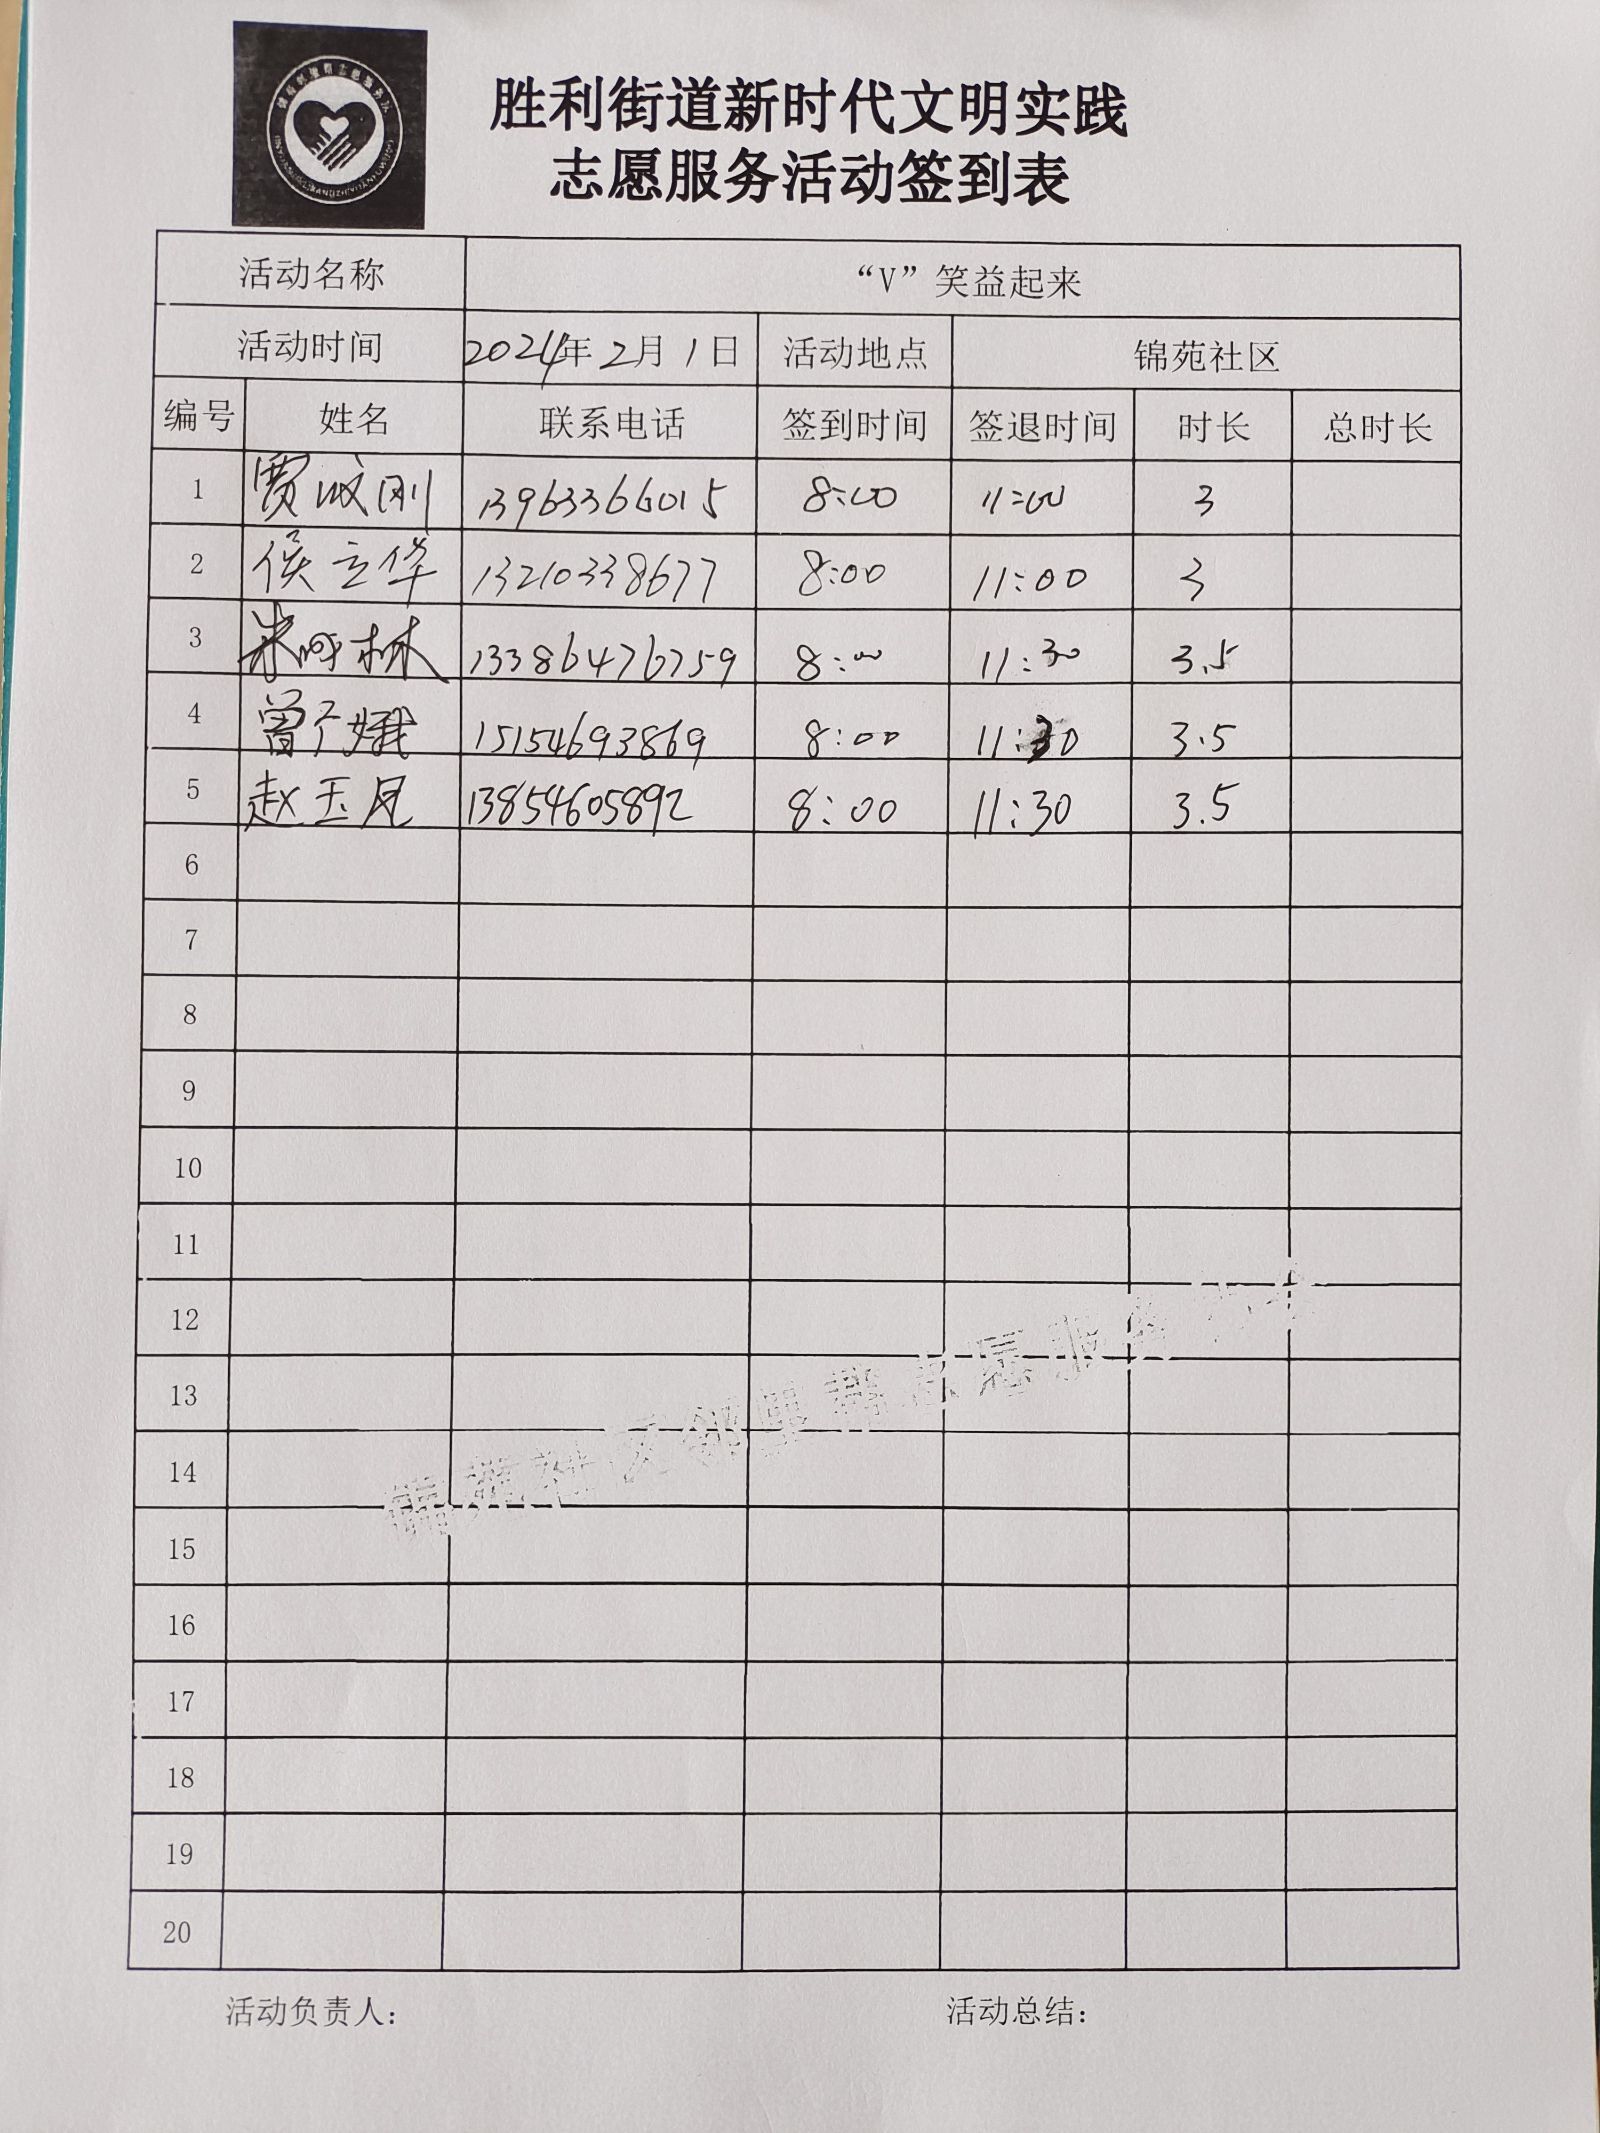 胜利街道新时代文明实践
志愿服务活动签到表
活动名称 “V”笑益起来
活动时间 2024年2月1日 活动地点 锦苑社区
编号 姓名 联系电话 签到时间 签退时间 时长 总时长
1 贾成刚 13963366015 8:00 11:00 3
2 侯立华 13210338677 8:00 11:00 3
3 林 13386476759 8:00 11:30 3.5
4 曾 娥 15154693869 8:00 11:30 3.5
5 赵玉凤 13854605892 8:00 11:30 3.5
6
7
8
9
10
11
12
13
14
15
16
17
18
19
20
锦苑社区邻里帮志愿服务
活动负责人: 活动总结: